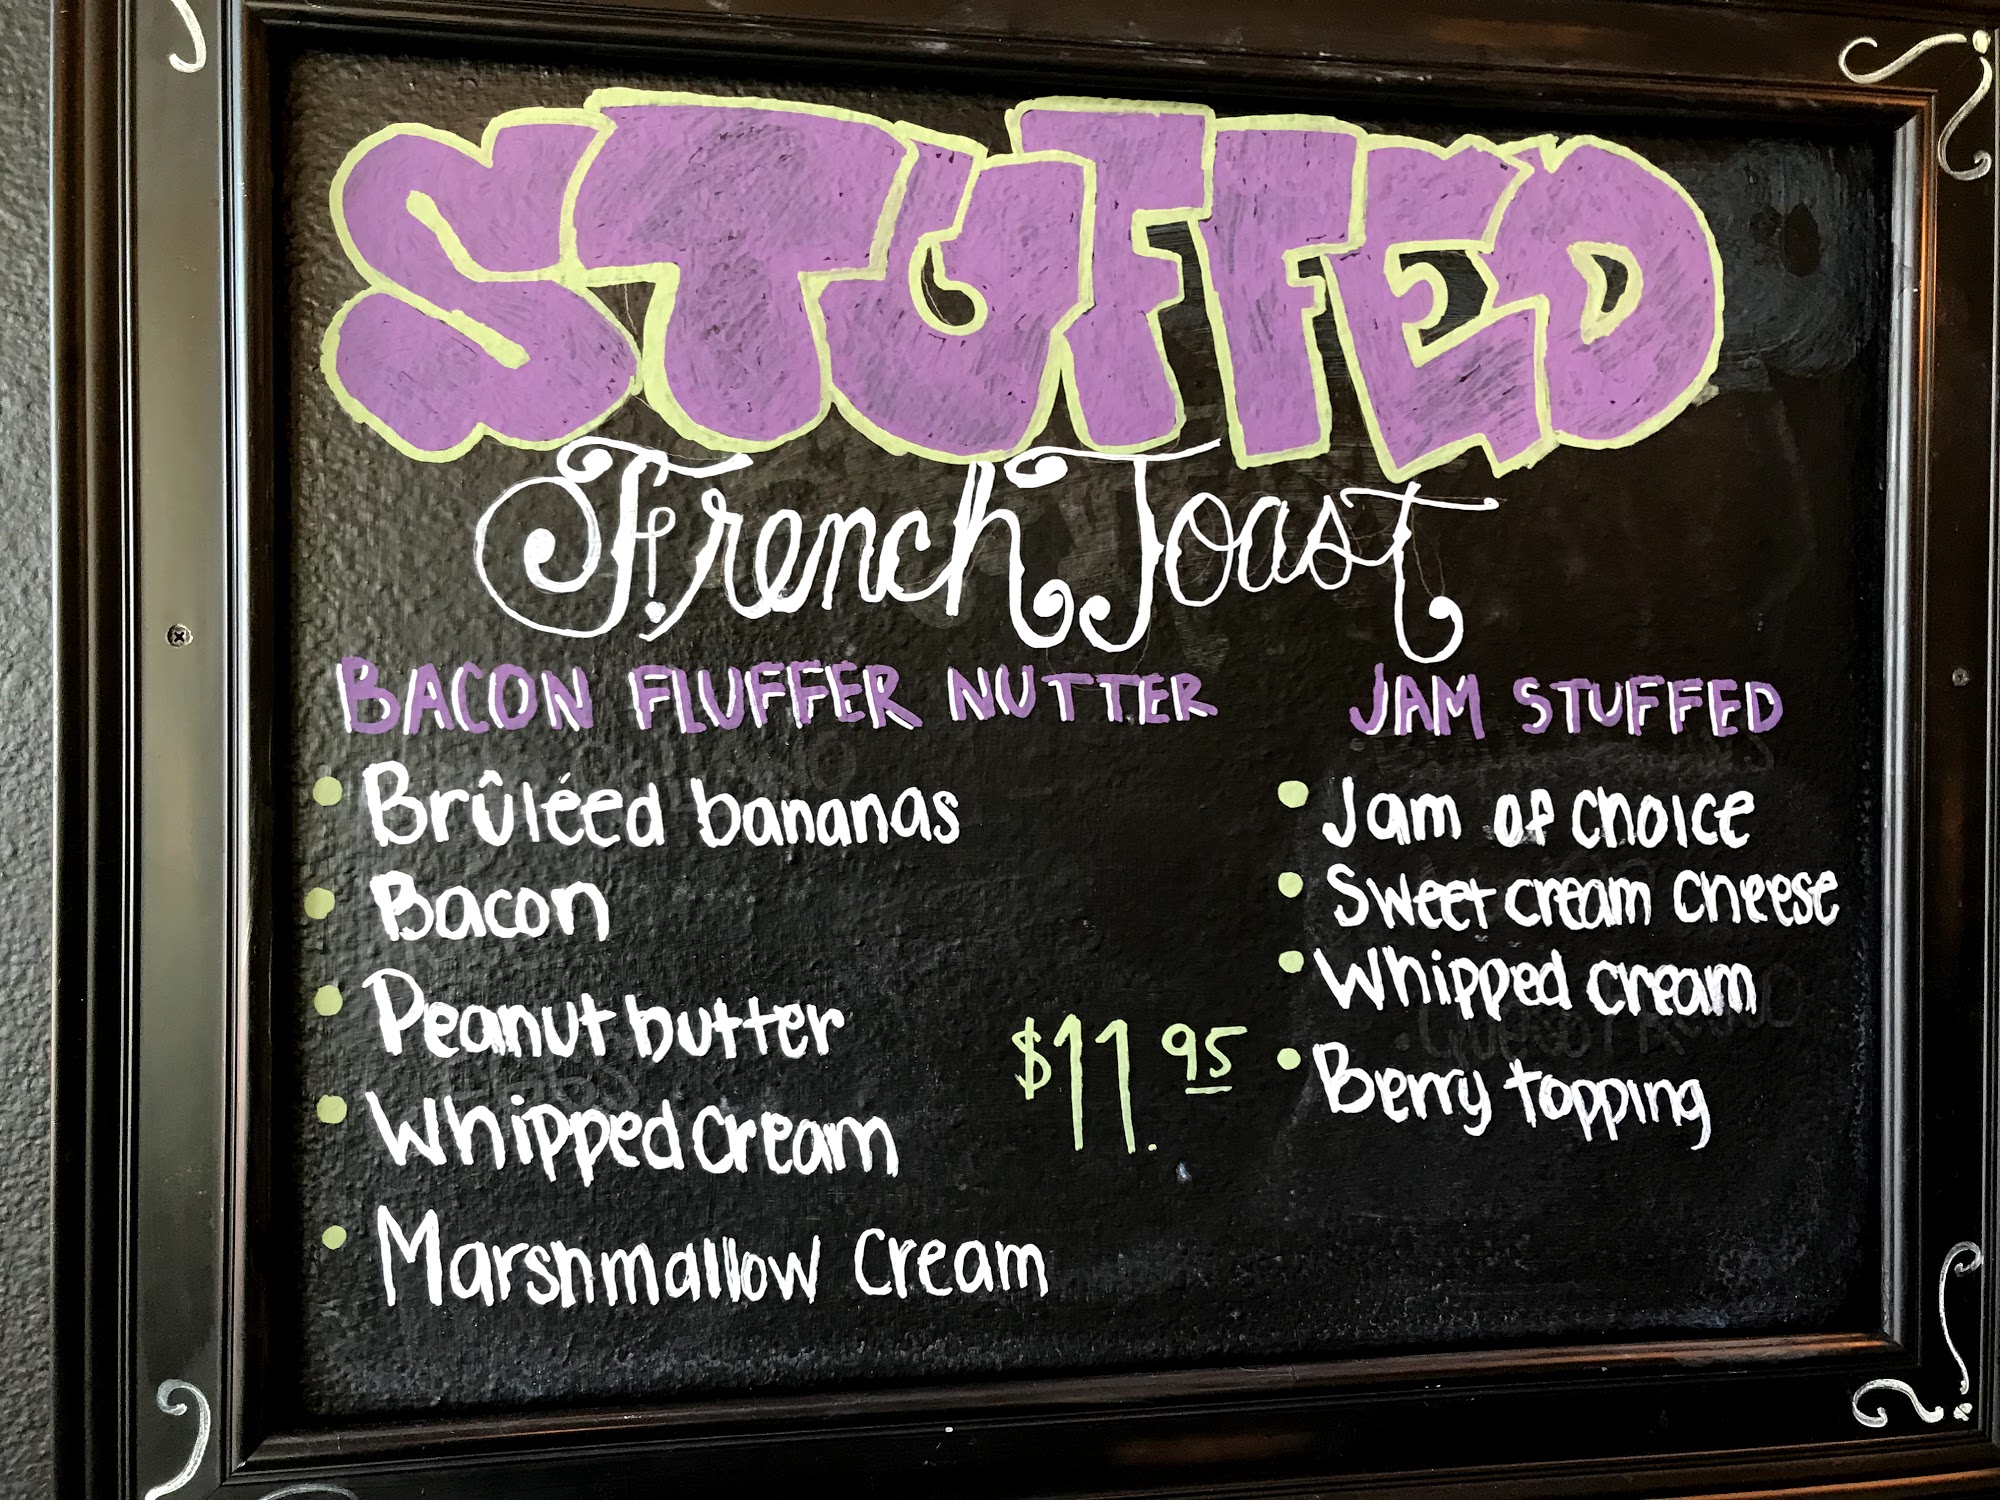 STUFFED
French Toast
BACON FLUFFER NUTTER
• Brûléed bananas
• Bacon
• Peanut butter
• Whipped cream
• Marshmallow Cream
$11.95
JAM STUFFED
• Jam of choice
• Sweet cream cheese
• Whipped cream
• Berry topping